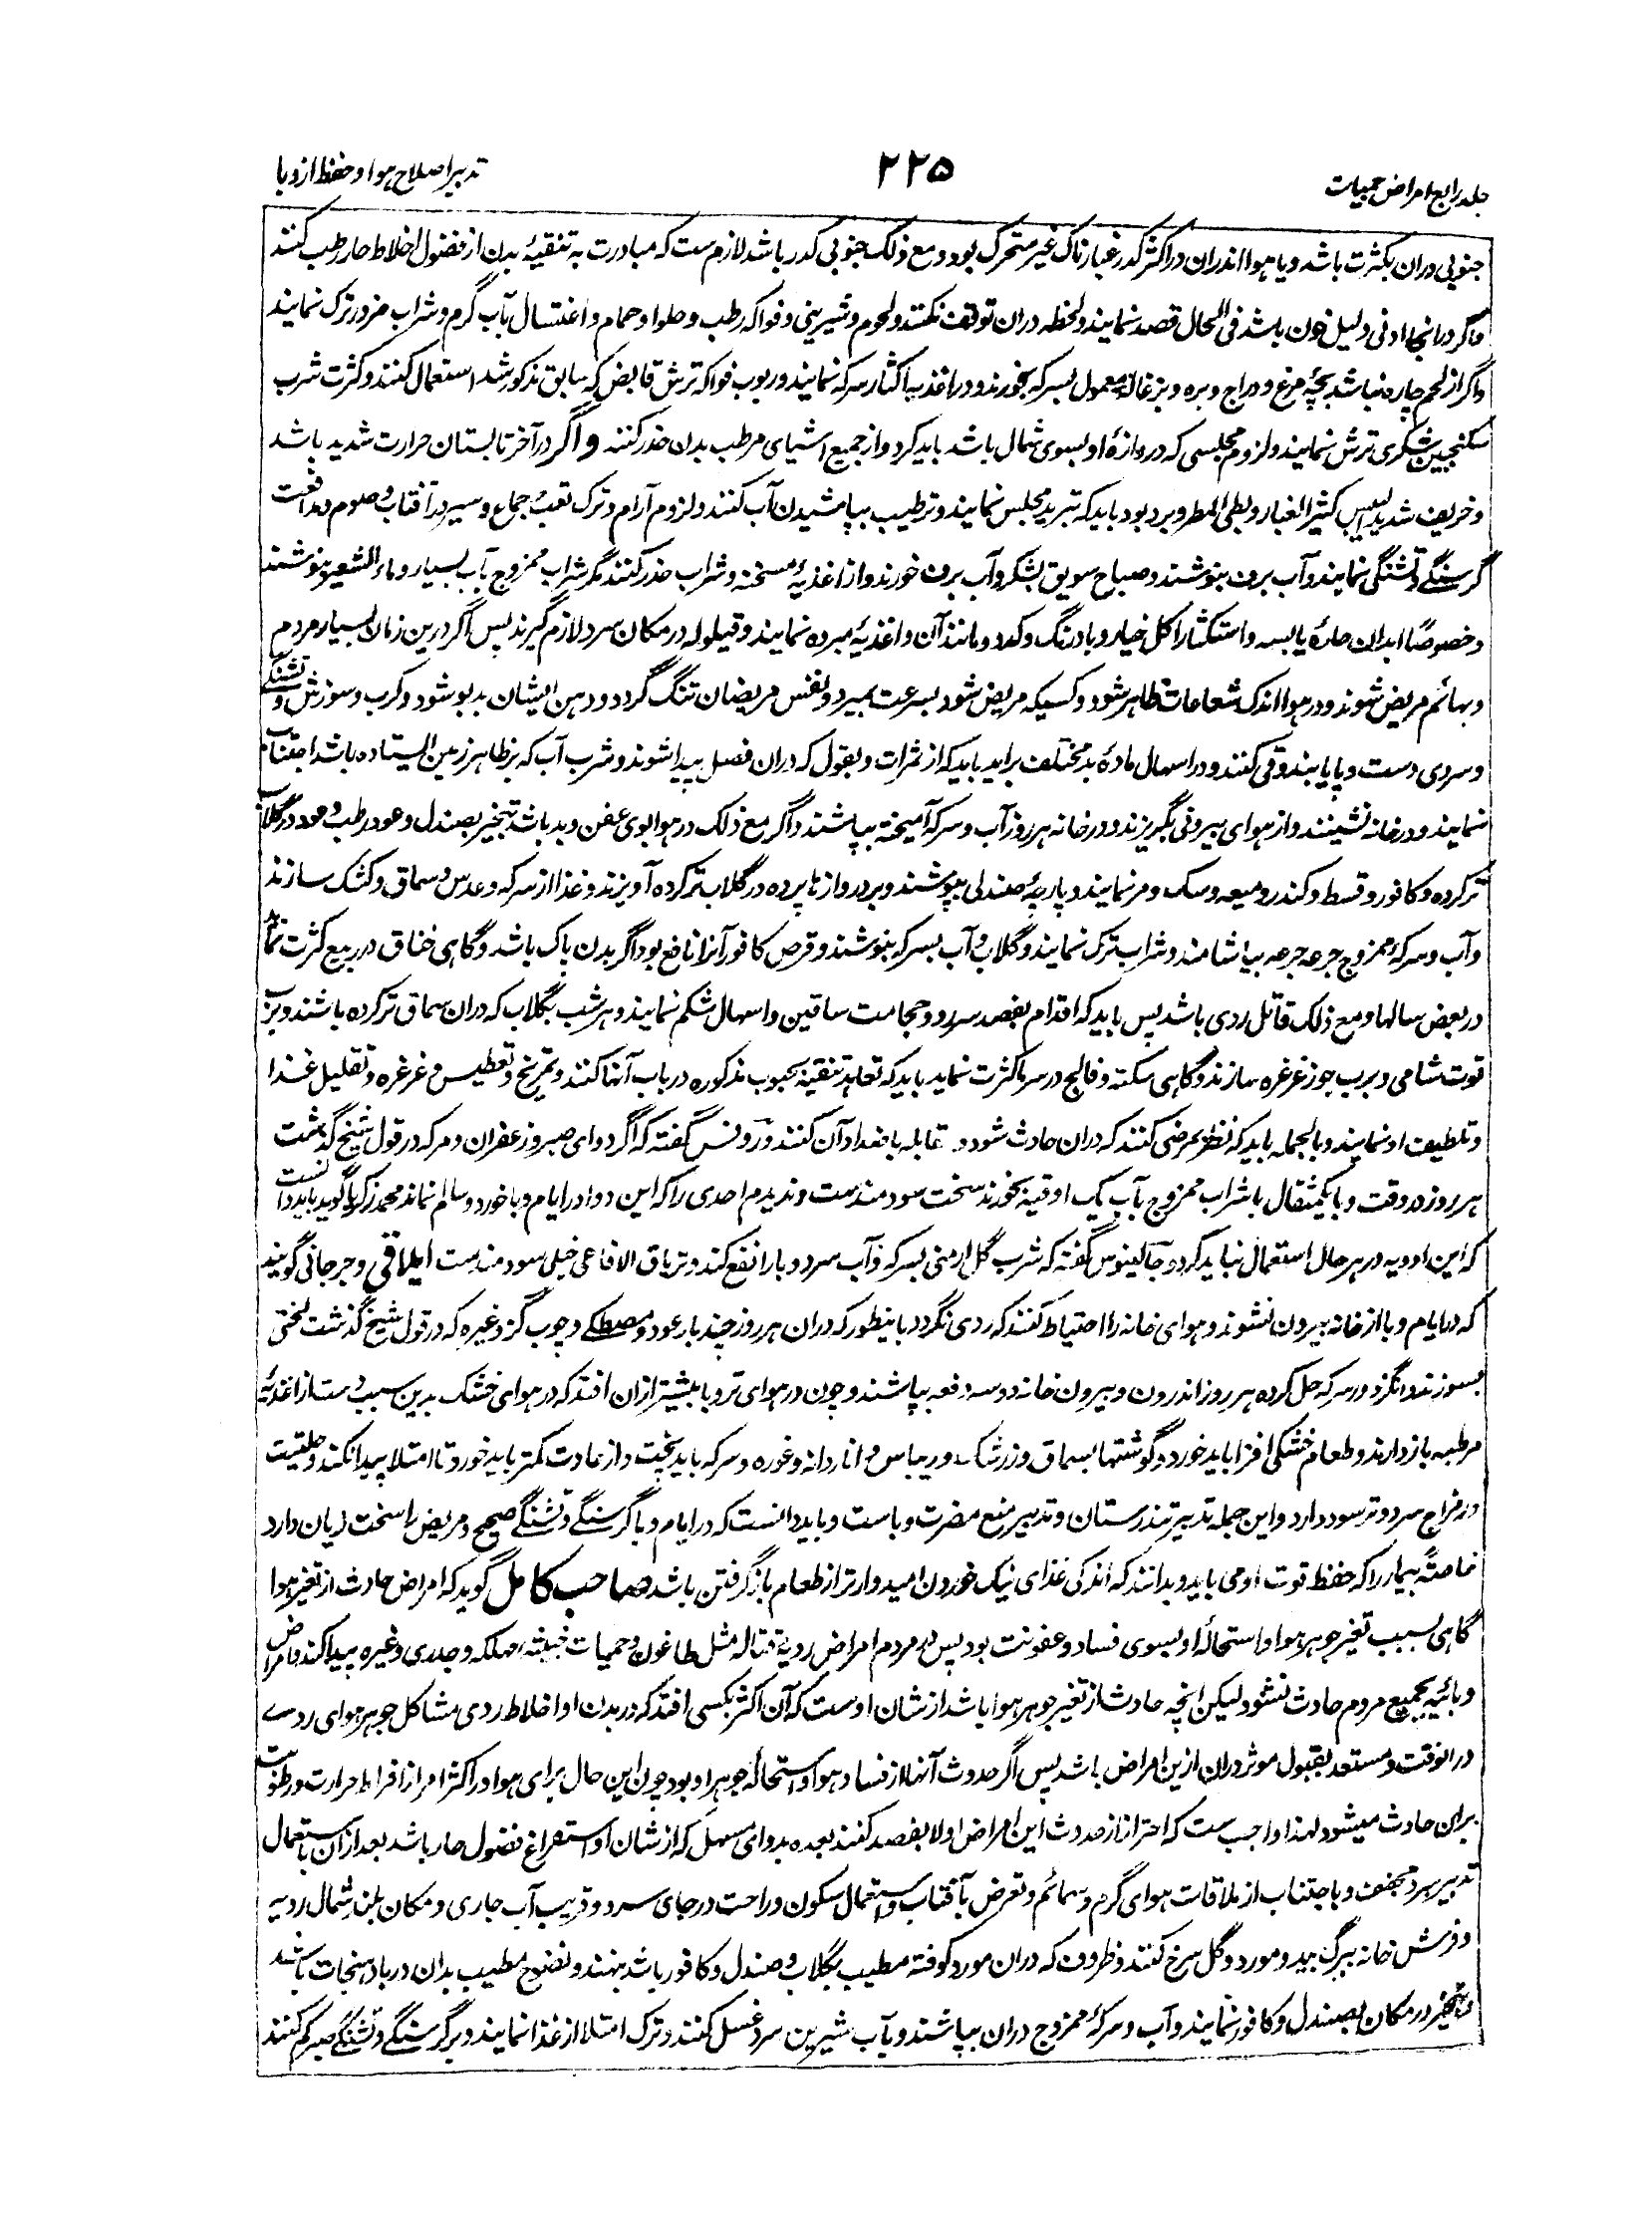 جلد رابع امراض حمیات
۲۲۵
تدبیر اصلاح هوا و حفظ از وبا
جنوبی دران بکثرت باشد و یا هوا اندران در اکثر کدر غبارناک غیر متحرک بود و مع ذلک جنوبی کدر باشد لازم ست که مبادرت به تنقیهٔ بدن از فضول اخلاط حار رطب کنند
و اگر در انجا ادنی دلیل خون باشد فی الحال فصد نمایند و لحظه دران توقف نکنند و لحوم و شیرینی و فواکه رطب و حلوا و حمام و اغتسال بآب گرم و شراب مزور ترک نمایند
و اگر از لحم چاره نباشد بچهٔ مرغ و دراج و بره و بزغاله معمول بسرکه بخورند و در اغذیه اکثار سرکه نمایند و ربوب فواکه ترش قابض که سابق مذکور شد استعمال کنند و کثرت شرب
سکنجبین شکری ترش نمایند و لزوم مجلسی که دروازهٔ او بسوی شمال باشد باید کرد و از جمیع اشیای مرطب بدن حذر کنند و اگر در آخر تابستان حرارت شدید باشد
و خریف شدید الیبس کثیر الغبار و بطی المطر و برد بود باید که تبرید مجلس نمایند و ترطیب بپاشیدن آب کنند و لزوم آرام و ترک تعب و جماع و سیر در آفتاب و صوم و مدافعت
گرسنگے و تشنگی نمایند و آب برف بنوشند و صباح سویق بشکر و آب برف خورند و از اغذیهٔ مسخنه و شراب حذر کنند مگر شراب ممزوج بآب بسیار و ماء الشعیر بنوشند
و خصوصًا ابدان حارهٔ یابسه و استکثار اکل خیار و بادرنگ و کدو و مانند آن و اغذیهٔ مبرده نمایند و قیلوله در مکان سرد لازم گیرند پس اگر درین زمان بسیار مردم
و بهائم مریض شوند و در هوا اندک شعاعات ظاهر شود و کسیکه مریض شود بسرعت بمیرد و نفس مریضان تنگ گردد و دهن ایشان بدبو شود و کرب و سوزش و تشنگے
و سردی دست و پا یابند و قی کنند و در اسهال مادهٔ بد مختلف براید باید که از ثمرات و بقول که دران فصل پیدا شوند و شرب آب که بر ظاهر زمین ایستاده باشد اجتناب
نمایند و در خانه نشینند و از هوای بیرونی بگریزند و در خانه هر روز آب و سرکه آمیخته بپاشند و اگر مع ذلک در هوا بوی عفن و بد باشد تبخیر بصندل و عود رطب و عود در گلاب
تر کرده و کافور و قسط و کندر و میعه و سک و مر نمایند و پارچهٔ صندلی بپوشند و بر دروازها پرده در گلاب تر کرده آویزند و غذا از سرکه و عدس و سماق و کشک سازند
و آب و سرکهٔ ممزوج جرعه جرعه بیاشامند و شراب ترک نمایند و گلاب و آب بسرکه بنوشند و قرص کافور آنرا نافع بود اگر بدن پاک باشد و گاهی خناق در ربیع کثرت نماید
در بعض سالها و مع ذلک قاتل ردی باشد پس باید که اقدام بفصد سررو و حجامت ساقین و اسهال شکم نمایند و هر شب بگلاب که دران سماق تر کرده باشند و برب
توت شامی و برب جوز غرغره سازند و گاهی سکته و فالج در سرما کثرت نماید باید که تعاهد تنقیه بحبوب مذکوره در باب آنها کنند و تمریخ و تعطیس و غرغره و تقلیل غذا
و تلطیف او نمایند و بالجمله باید که نظر بمرضی کنند که دران حادث شود و مقابله باضداد آن کنند و رونس گفته که اگر دوای صبر و زعفران و مر که در قول شیخ گذشت
هر روز در وقت وبا یکمثقال با شراب ممزوج بآب یک اوقیه بخورند سخت سودمندست و ندیدم احدی را که این دوا در ایام وبا خورد و سالم نماند محمد زکریا گوید باید دانست
که این ادویه در هر حال استعمال نباید کرد و جالینوس گفته که شرب گل ارمنی بسرکه و آب سرد وبا را نفع کند و تریاق الافاعی خیلی سودمندست ایلاقی و جرجانی گویند
که در ایام وبا از خانه بیرون نشوند و هوای خانه را احتیاط کنند که ردی نگردد باینطور که دران هر روز چند بار عود و مصطکے و چوب گز و غیره که در قول شیخ گذشت لختی
بسوزند و انگزد در سرکه حل کرده هر روز اندرون و بیرون خانه دو سه دفعه بپاشند و چون در هوای تر وبا بیشتر ازان افتد که در هوای خشک بدین سبب دست از اغذیهٔ
مرطبه باز دارند و طعام خشکی افزا باید خورد و گوشتها بسماق و زرشک و ریباس و اناردانه و غوره و سرکه باید پخت و از عادت کمتر باید خورد تا امتلا پیدا نکند و حلتیت
در مزاج سرد و تر سود دارد و این جمله تدبیر تندرستان و تدبیر منع مضرت وباست و باید دانست که در ایام وبا گرسنگے و تشنگے صحیح و مریض را سخت زیان دارد
خاصتًه بیمار را که حفظ قوت او می باید و بدانند که اندکی غذای نیک خوردن امیدوارتر از طعام باز گرفتن باشد صاحب کامل گوید که امراض حادث از تغیر هوا
گاهی بسبب تغیر جوهر هوا و استحالهٔ او بسوی فساد و عفونت بود پس در مردم امراض ردیهٔ قتاله مثل طاعون و حمیات خبیثه مهلکه و جدری و غیره پیدا کند و امراض
وبائیه بجمیع مردم حادث نشود لیکن انچه حادث از تغیر جوهر هوا باشد از شان اوست که آن اکثر بکسی افتد که در بدن او اخلاط ردی مشاکل جوهر هوای ردے
درانوقت و مستعد بقبول موثر دران ازین امراض باشد پس اگر حدوث آنها از فساد هوا و استحالهٔ جوهر او بود چون این حال برای هوا در اکثر امر از افراط حرارت و رطوبت
بران حادث میشود لهذا واجب ست که احتراز از حدوث این امراض اولا بفصد کنند بعده بدوای مسهل که از شان او استفراغ فضول حار باشد بعد ازان باستعمال
تدبیر سرد مجفف و باجتناب از ملاقات هوای گرم و سمائم و تعرض بآفتاب و استعمال سکون و راحت در جای سرد و قریب آب جاری و مکان بلند شمال رویه
و فرش خانه ببرگ بید و مورد و گل سرخ کنند و ظروف که دران مورد کوفته مطیب بگلاب و صندل و کافور باشد بنهند و نضوح مطیب بدان در بادهنجات باشد
و تبخیر در مکان بصندل و کافور نمایند و آب و سرکهٔ ممزوج دران بپاشند و بآب شیرین سرد غسل کنند و ترک امتلا از غذا نمایند و بر گرسنگے و تشنگے صبر کم کنند